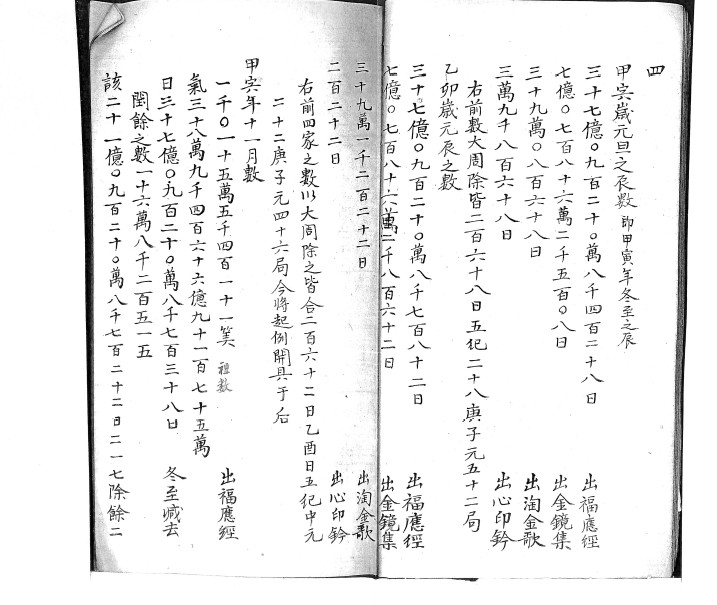 四
甲寅歲元旦之辰數 即甲寅年冬至之辰
三十七億〇九百二十〇萬八千四百二十八日 出福應經
七億〇七百八十六萬二千五百〇八日 出金鏡集
三十九萬〇八百六十八日 出淘金歌
三萬九千八百六十八日 出心印鈐
右前數大周除皆二百六十八日五紀二十八庚子元五十二局
乙卯歲元辰之數
三十七億〇九百二十〇萬八千七百八十二日 出福應經
七億〇七百八十六萬二千八百六十二日 出金鏡集
三十九萬一千二百二十二日 出淘金歌
二百二十二日 出心印鈐
右前四家之數以大周除之皆合二百六十二日乙酉日五紀中元
二十二庚子元四十六局今將起例開具于后
甲寅年十一月數
一千〇一十五萬五千四百一十一筭 祖數 出福應經
氣三十八萬九千四百六十六億九十一百七十五萬
日三十七億〇九百二十〇萬八千七百三十八日 冬至減去
閏餘之數一十六萬八千二百五一五
該二十一億〇九百二十〇萬八千七百二十二日二一七除餘二